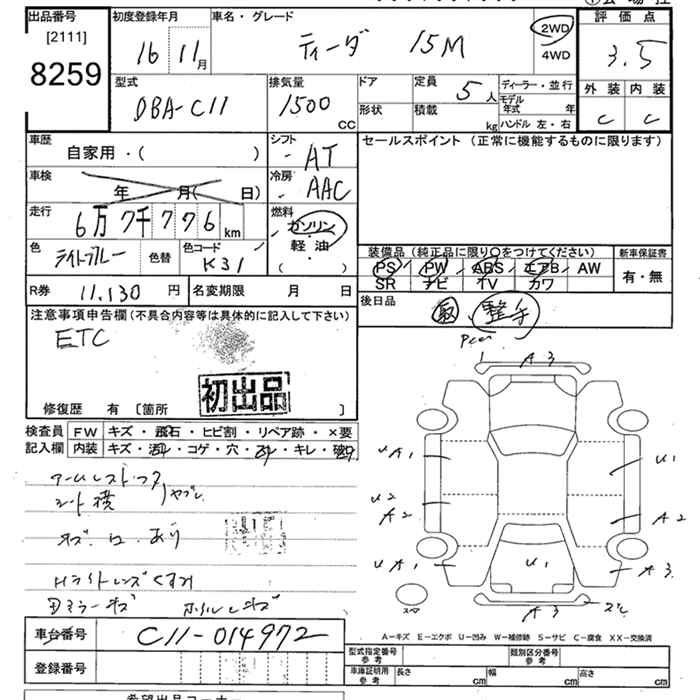 出品番号
[2111]
8259
初度登録年月
16 11月
車名・グレード
ティーダ 15M
2WD
4WD
評価点
3.5
外装 内装
C C
型式
DBA-C11
排気量
1500 CC
ドア
形状
定員 5人
積載 kg
ディーラー・並行
モデル年式 年
ハンドル 左・右
車歴
自家用・( )
シフト
AT
セールスポイント (正常に機能するものに限ります)
車検
年 月( 日)
冷房
AAC
走行
6万7千776km
燃料
ガソリン
軽・油
( )
色
ライトブルー
色替
色コード
K31
装備品 (純正品に限り○をつけてください)
PS PW ABS エアB AW
SR ナビ TV カワ
新車保証書
有・無
R券 11,130 円
名変期限 月 日
後日品
取、整手
注意事項申告欄(不具合内容等は具体的に記入して下さい)
ETC
初出品
修復歴 有 [箇所 ]
検査員記入欄
FW キズ・飛石・ヒビ割・リペア跡・×要
内装 キズ・汚・コゲ・穴・・キレ・破
アームレスト・フタ
シート横 ヤブレ
キズ.凹.あり
Hライトレンズくすみ
Dミラーキズ ホイルキズ
1 A3
UA1
U1
U2
A2
A2
UA1
U1
A3
スペア
A3
A-キズ E-エクボ U-凹み W-補修跡 S-サビ C-腐食 XX-交換済
車台番号 C11-014972
登録番号
型式指定番号 参考
類別区分番号 参考
車庫証明用 参考 長さ cm 幅 cm 高さ cm